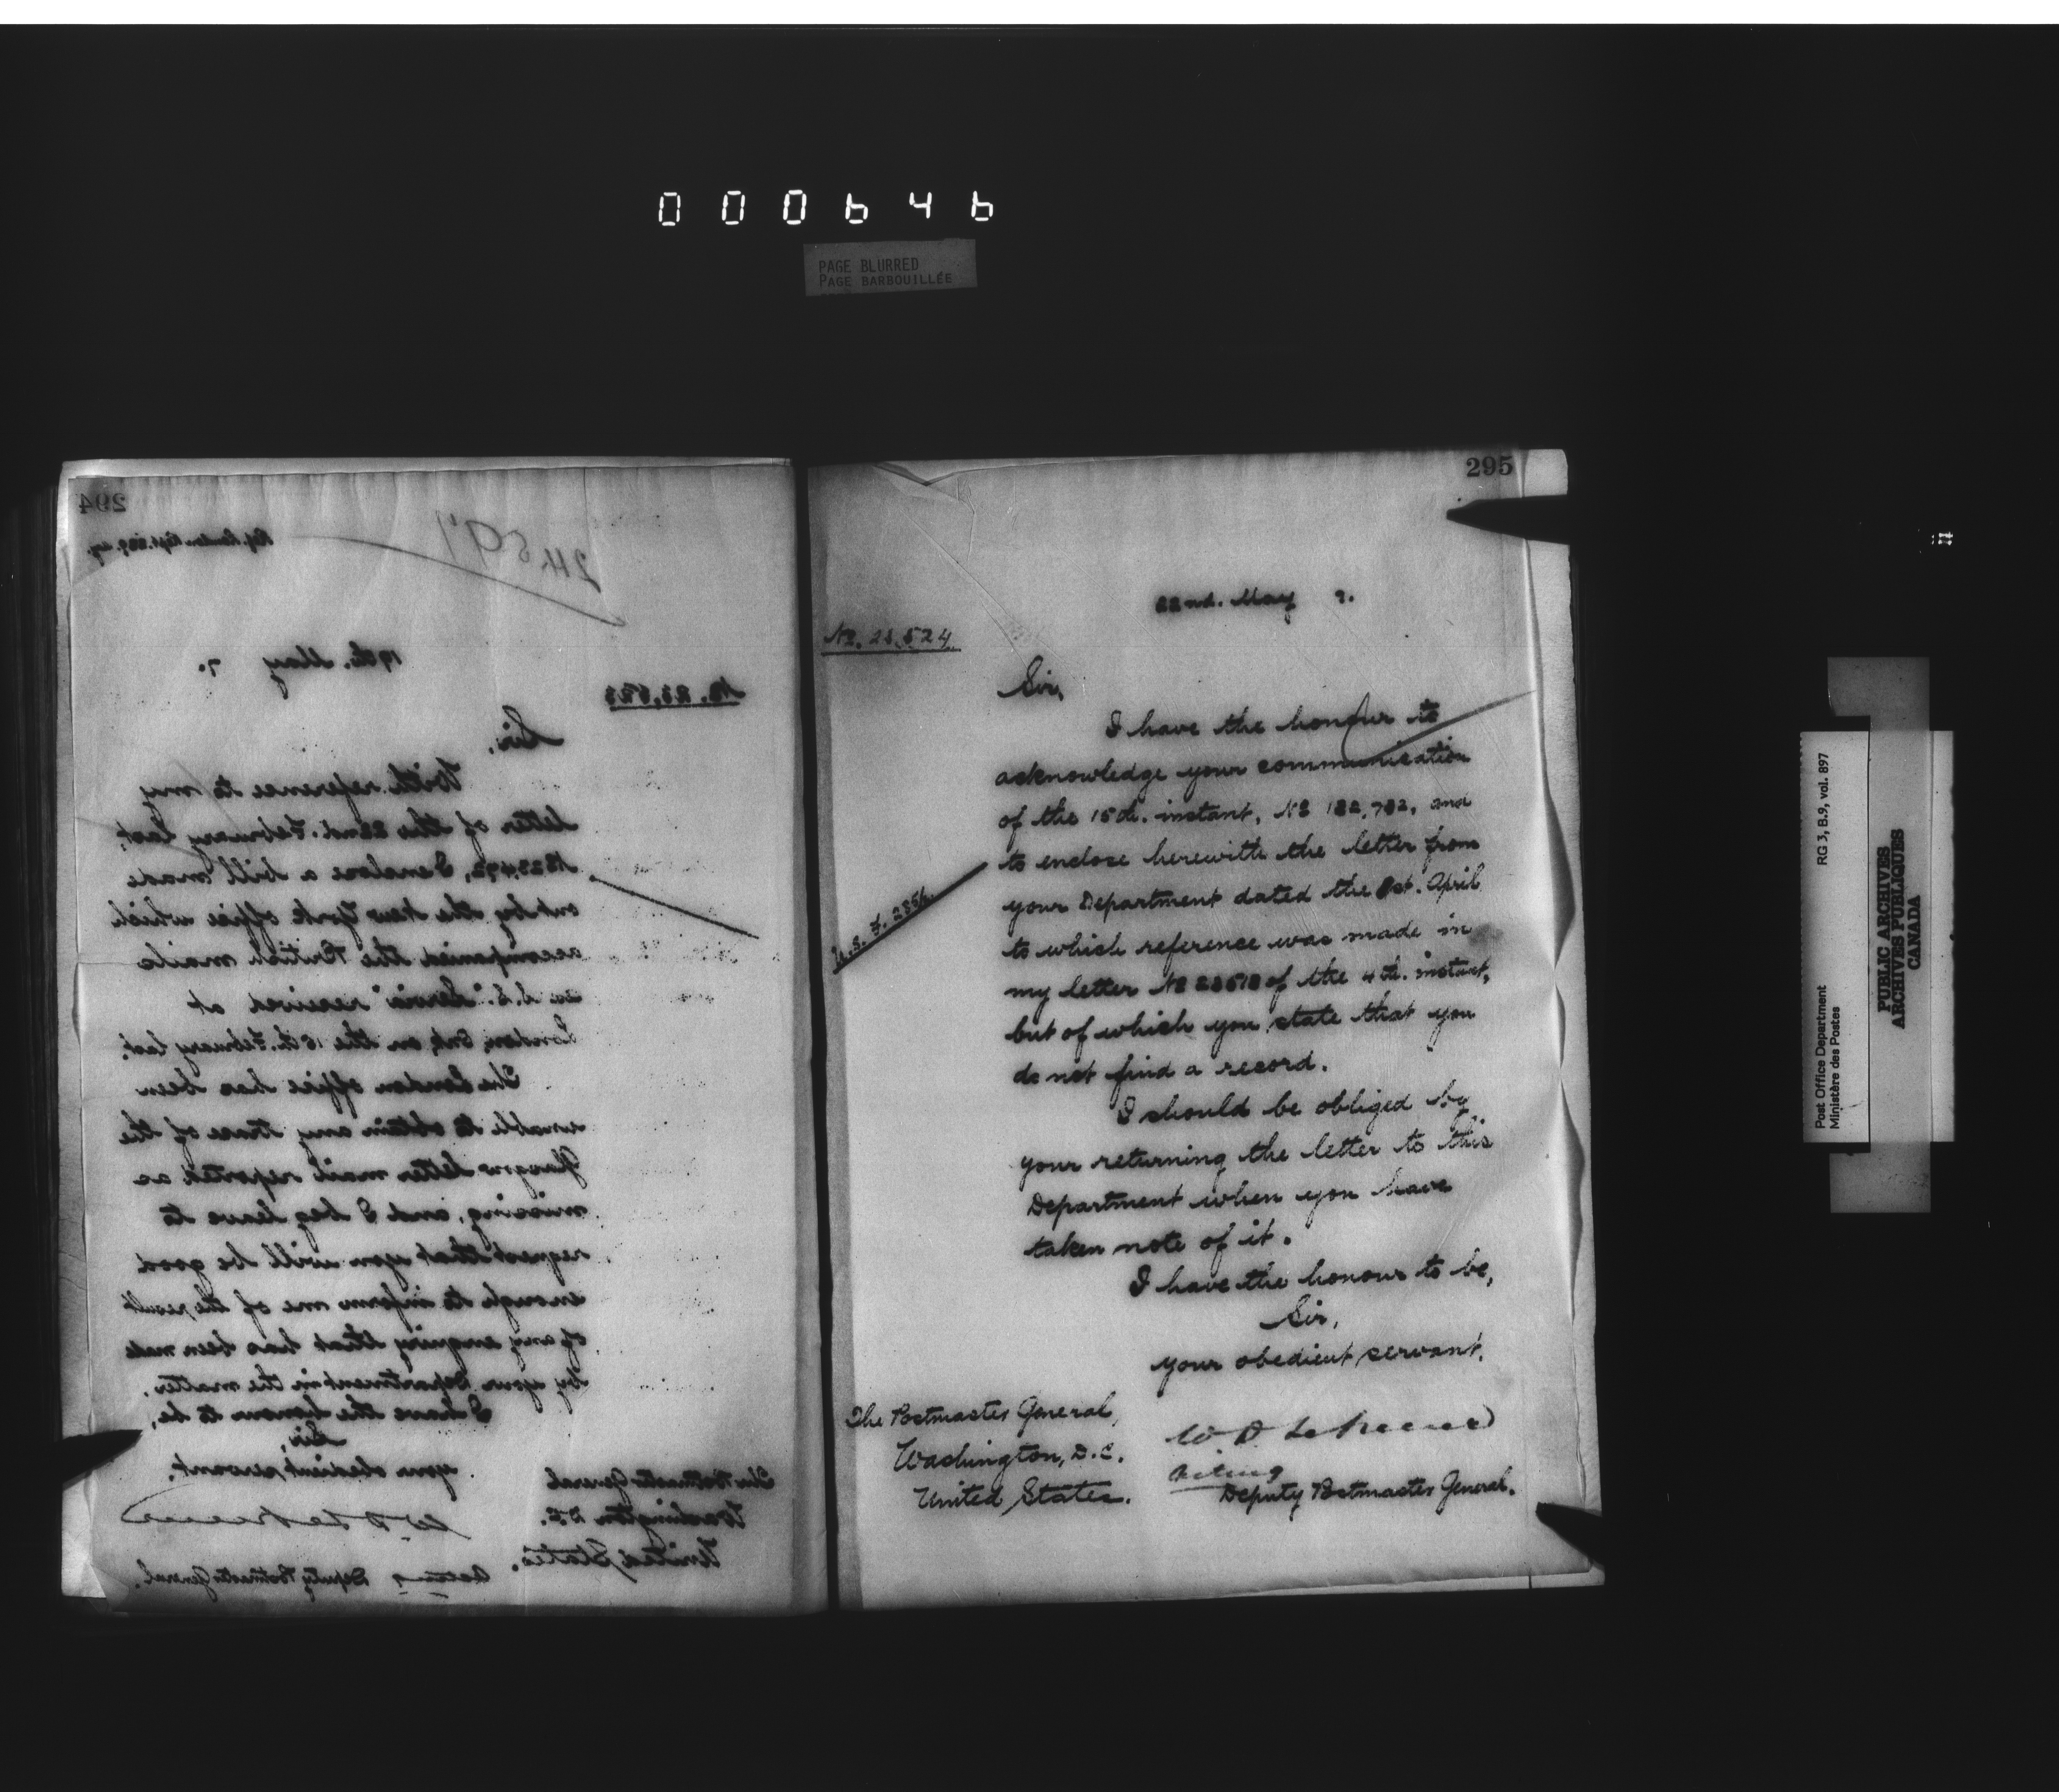 000646
PAGE BLURRED
PAGE BARBOUILLÉE
294
2459
19th. May 7.
No. 23,523
Sir,
With reference to my
letter of the 22nd. February last,
I enclose a bill made
out by the New York office which
accompanied the British mails
S.S. "Servia" received at
London, Ont, on the 15th. February last.
The London office has been
unable to obtain any trace of the
Glasgow letter mail reported as
missing, and I beg leave to
request that you will be good
enough to inform me of the result
of any enquiry that has been made
by your Department in the matter.
I have the honour to be,
Sir,
your obedient servant,
The Postmaster General
Washington D.C.
United States.
Acting Deputy Postmaster General.
295
22nd. May
No. 23,524
Sir,
I have the honour to
acknowledge your communication
of the 15th. instant, No 182,782, and
to enclose herewith the letter from
your Department dated the April
to which reference was made in
my letter No of the 4th. instant,
but of which you state that you
do not find a record.
I should be obliged by
your returning the letter to this
Department when you have
taken note of it.
I have the honour to be,
Sir,
your obedient servant,
The Postmaster General,
Washington, D.C.
United States.
Acting
Deputy Postmaster General.
Post Office Department RG 3, B.9, vol. 897
Ministère des Postes
PUBLIC ARCHIVES
ARCHIVES PUBLIQUES
CANADA